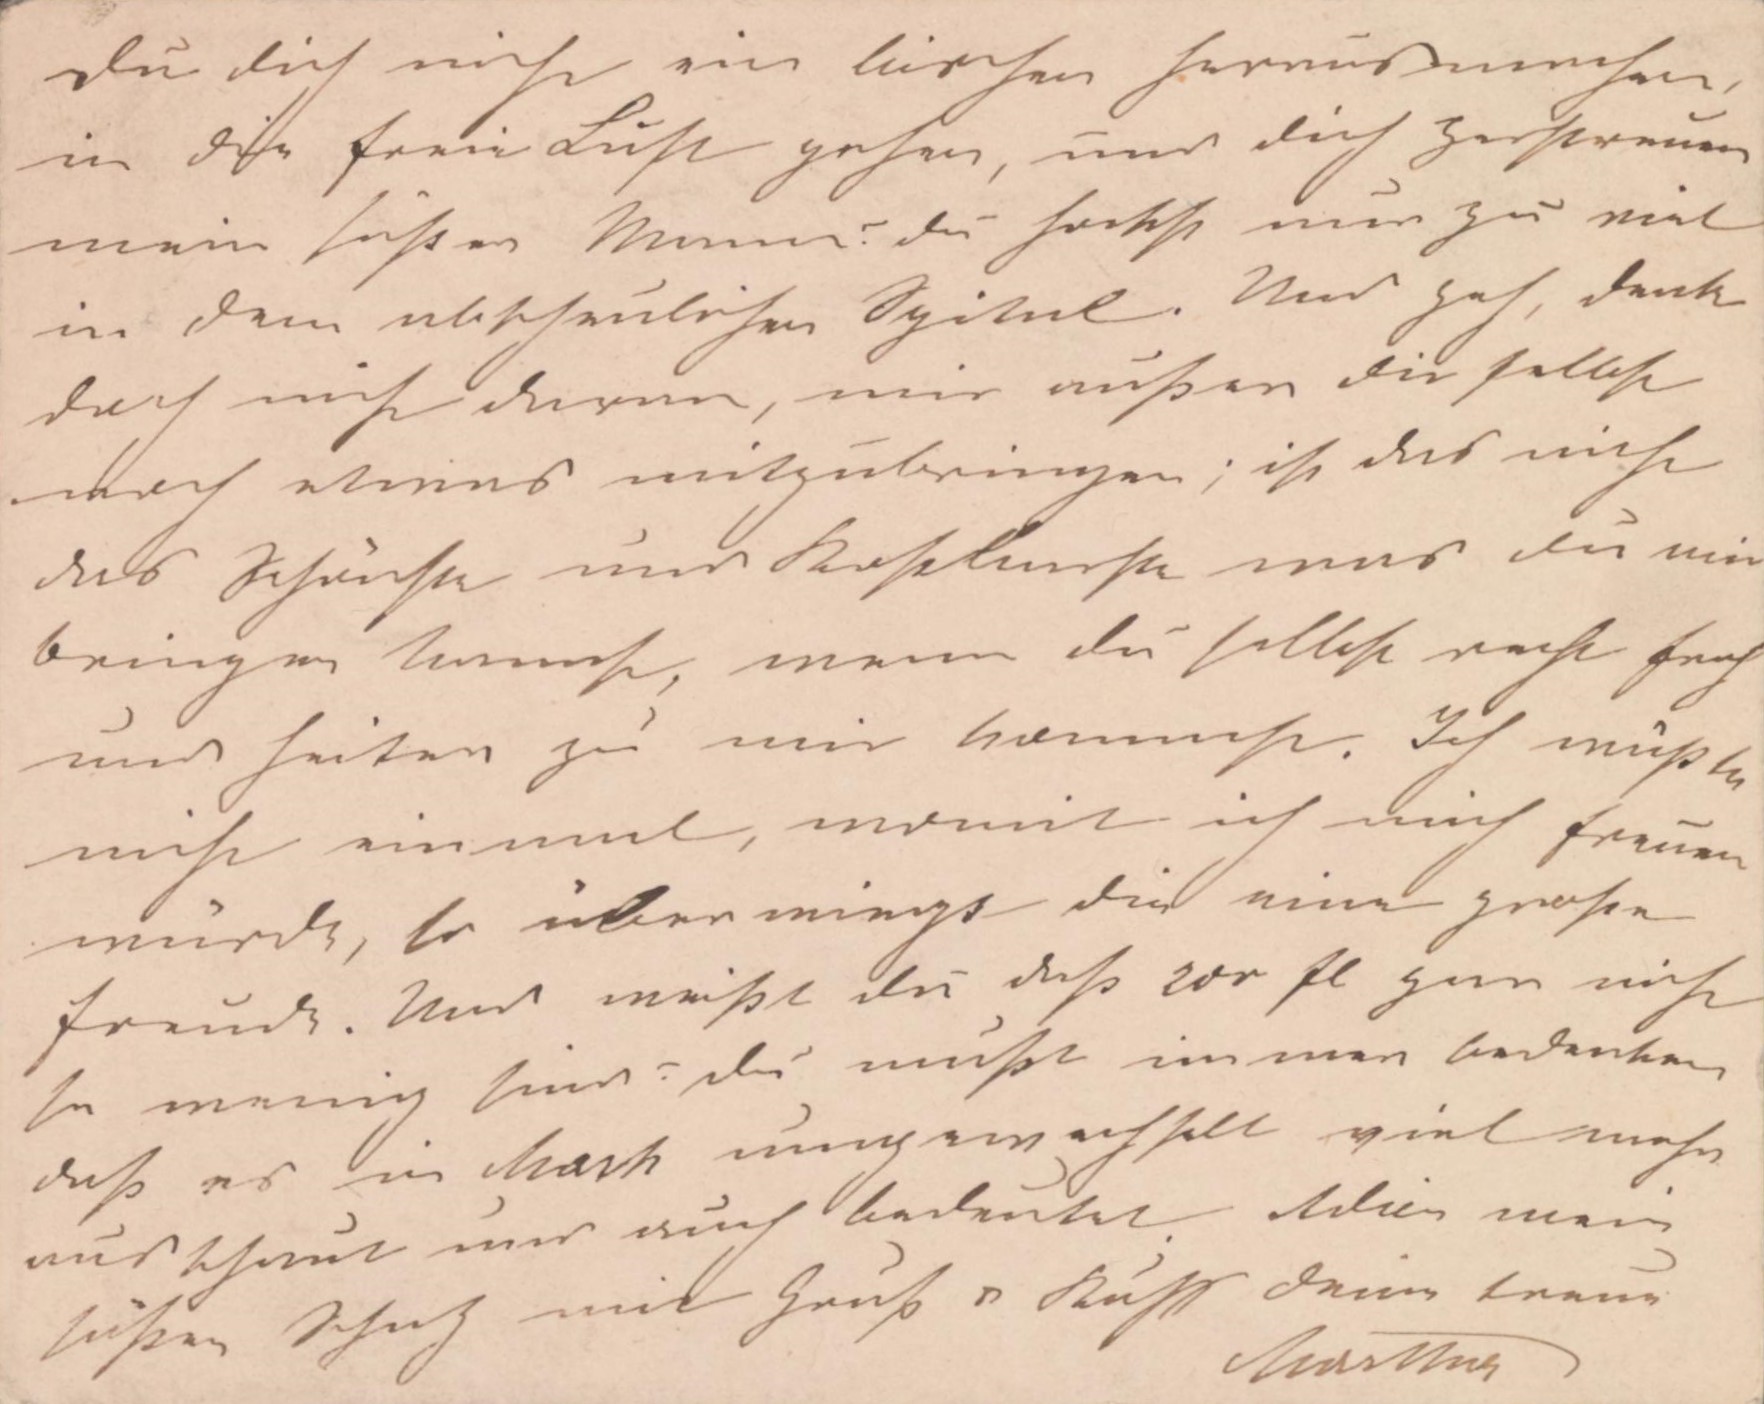 Du dich nicht ein bischen herausmachen,
in die freie Luft gehen, und dich zerstreuen
mein süßer Mann? du hockst nur zu viel
in dem abscheulichen Spital. Und geh, denk
doch nicht daran, mir außer dir selbst
noch etwas mitzubringen; ist das nicht
das Schönste und Kostbarste was du mir
bringen kannst, wenn du selbst recht froh
und heiter zu mir kommst. Ich wüßte
nicht einmal, womit ich mich freuen
würde, so überwiegt die eine große
Freude. Und weißt du daß 200 fl gar nicht
so wenig sind? du mußt immer bedenken
daß es in Mark umgewechselt viel mehr
ausschaut und auch bedeutet. Adieu mein
süßer Schatz mit Gruß u Kuß deine treue
Martha